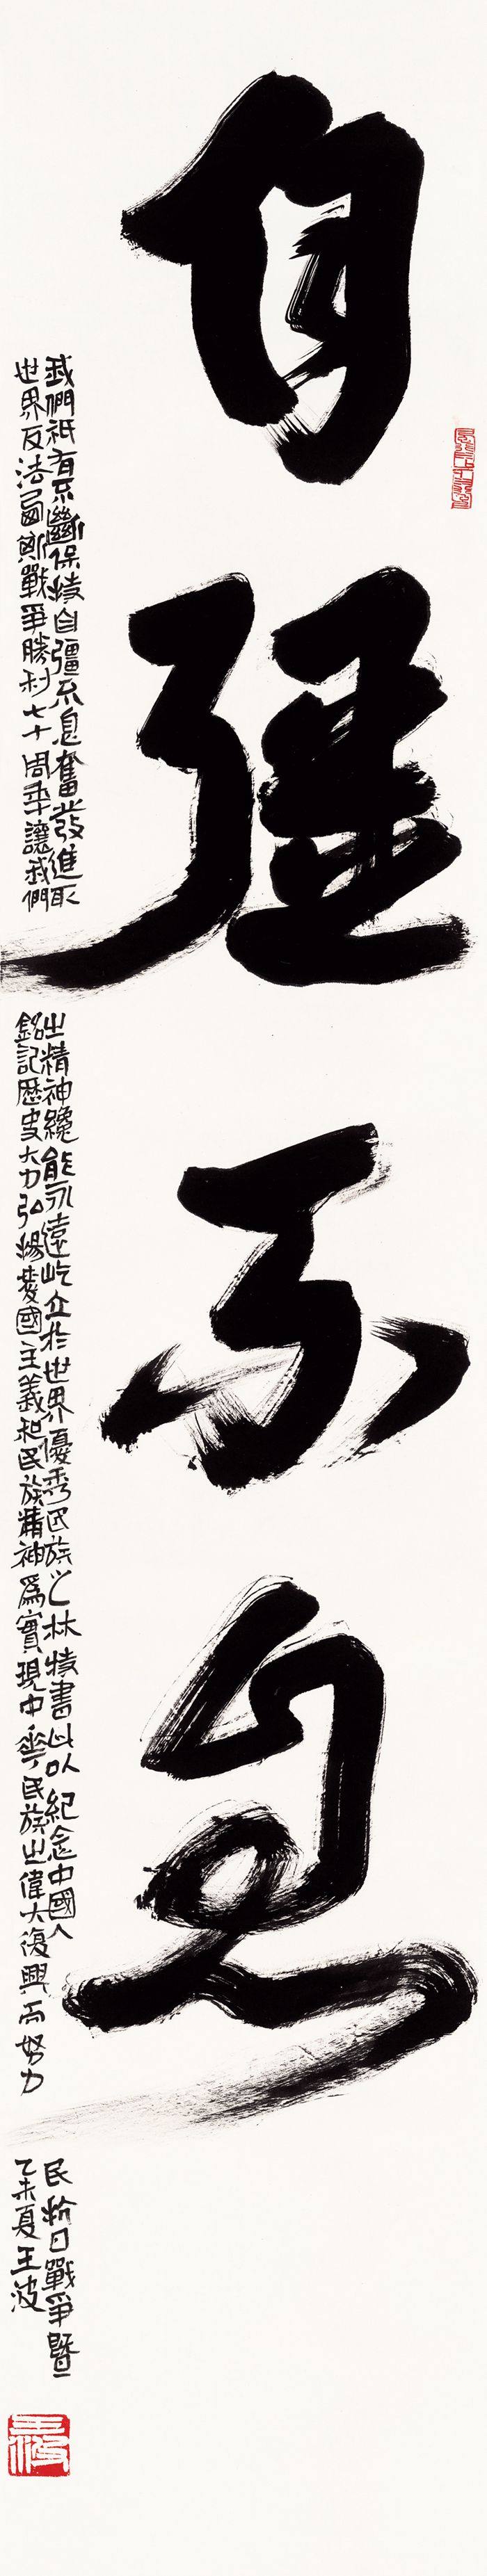 自彊不息
我們祇有不斷保持自彊不息奮發進取之精神纔能永遠屹立於世界優秀民族之林特書此以紀念中國人民抗日戰爭暨
世界反法西斯戰爭勝利七十周年讓我們銘記歷史大力弘揚愛國主義和民族精神爲實現中華民族之偉大復興而努力乙未夏王波
王波